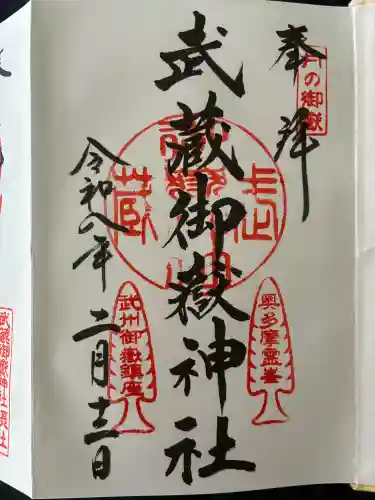 奉拝
月の御嶽
武蔵御嶽神社
奥多摩霊峯
武州御嶽鎮座
令和八年
二月十三日
武蔵御嶽神社